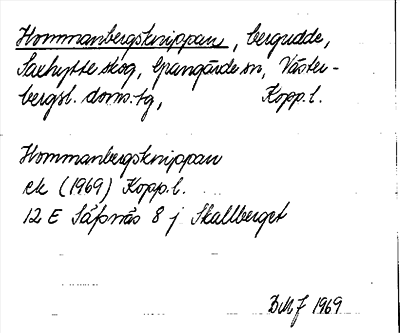 Hommanbergsknippan, bergudde,
Saxhytte skog, Grangärde sn, Väster-
bergsl. doms.tg, Kopp.l.
Hommanbergsknippan
ek (1969) Kopp.l.
12 E Säfsnäs 8 j Skallberget
BMJ 1969